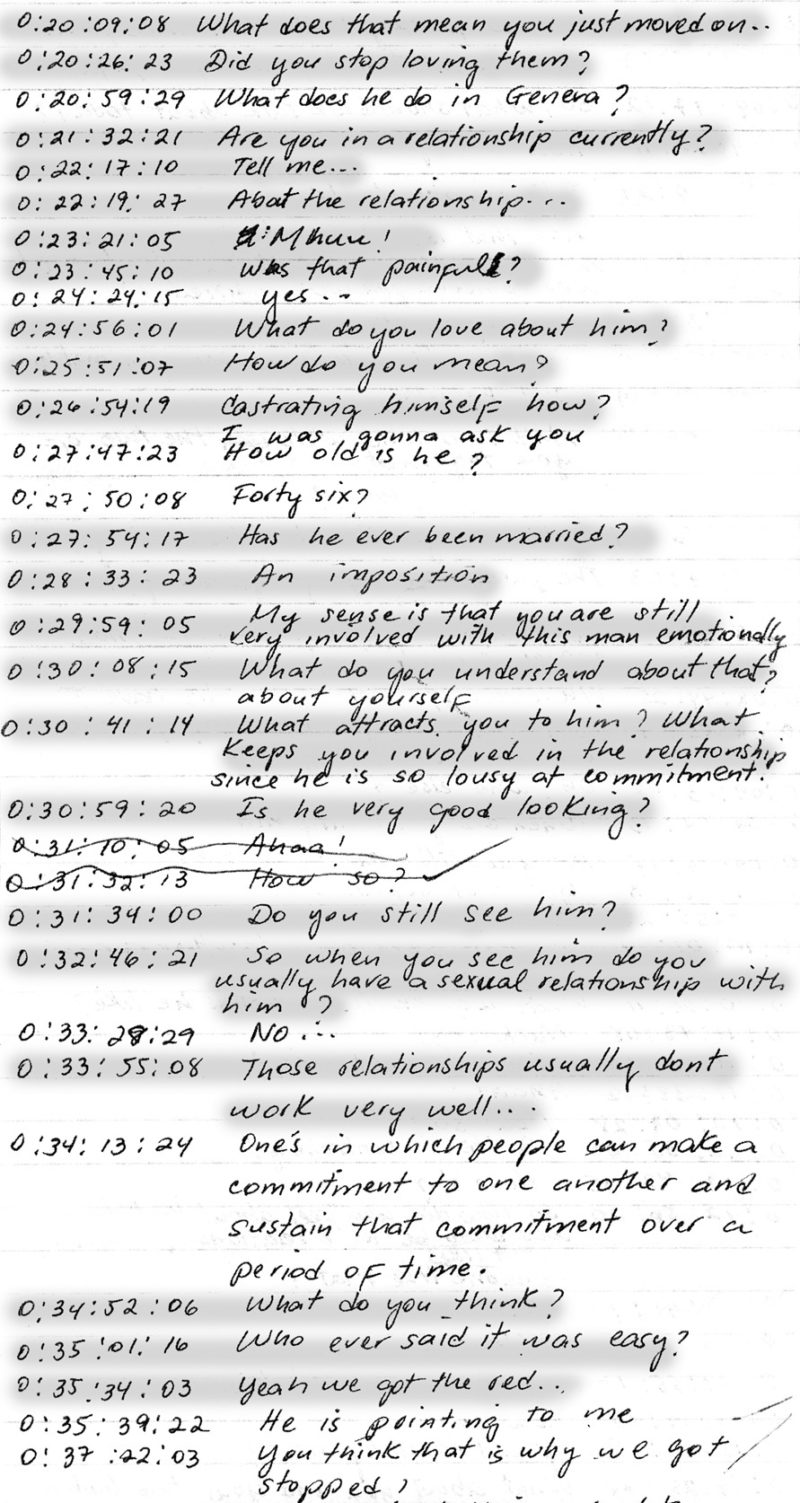 0:20:09:08 What does that mean you just moved on..
0:20:26:23 Did you stop loving them?
0:20:59:29 What does he do in Geneva?
0:21:32:21 Are you in a relationship currently?
0:22:17:10 Tell me...
0:22:19:27 About the relationship...
0:23:21:05
0:23:45:10 Was that painful?
0:24:24:15 yes...
0:24:56:01 What do you love about him?
0:25:51:07 How do you mean?
0:26:54:19 Castrating himself how?
I was gonna ask you
0:27:47:23 How old is he?
0:27:50:08 Forty six?
0:27:54:17 Has he ever been married?
0:28:33:23 An imposition
0:29:59:05 My sense is that you are still
very involved with this man emotionally
0:30:08:15 What do you understand about that?
about yourself
0:30:41:14 What attracts you to him? What
Keeps you involved in the relationship
since he is so lousy at commitment?
0:30:59:20 Is he very good looking?
0:31:10:05 Ahaa!
0:31:32:13 How so?
0:31:34:00 Do you still see him?
0:32:46:21 So when you see him do you
usually have a sexual relationship with
him?
0:33:28:29 No...
0:33:55:08 Those relationships usually dont
work very well...
0:34:13:24 One's in which people can make a
commitment to one another and
sustain that commitment over a
period of time.
0:34:52:06 What do you think?
0:35:01:16 Who ever said it was easy?
0:35:34:03 Yeah we got the red...
0:35:39:22 He is pointing to me
0:37:22:03 You think that is why we got
stopped?